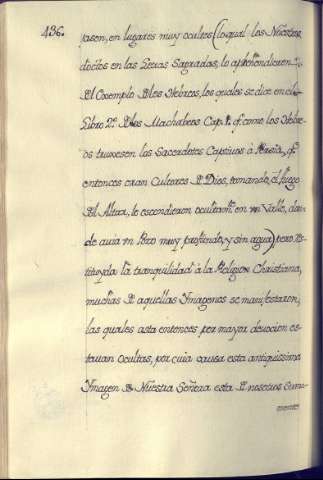 436.
pasen, en lugares muy ocultos (lo qual los Nuestros,
doctos en las Letras Sagradas, lo aprehendieron
del Exemplo de los Hebreos, los quales se dice en el
Libro 2º de los Machabeos Cap. 1. que como los Hebre-
os truxesen los Sacerdotes Captivos à Persia, q̃
entonces eran Cultores de Dios, tomando, el fuego
del Altar, lo escondieron ocultamte en un Valle, don-
de auia un Pozo muy profundo, y sin agua) pero res-
tituyda la tranquilidad à la Religion Christiana,
muchas de aquellas Ymagenes se manifestaron,
las quales asta entonces por mayor deuocion es-
tauan ocultas, por cuia causa esta antiquissima
Ymagen de Nuestra Señora esta de nosotros